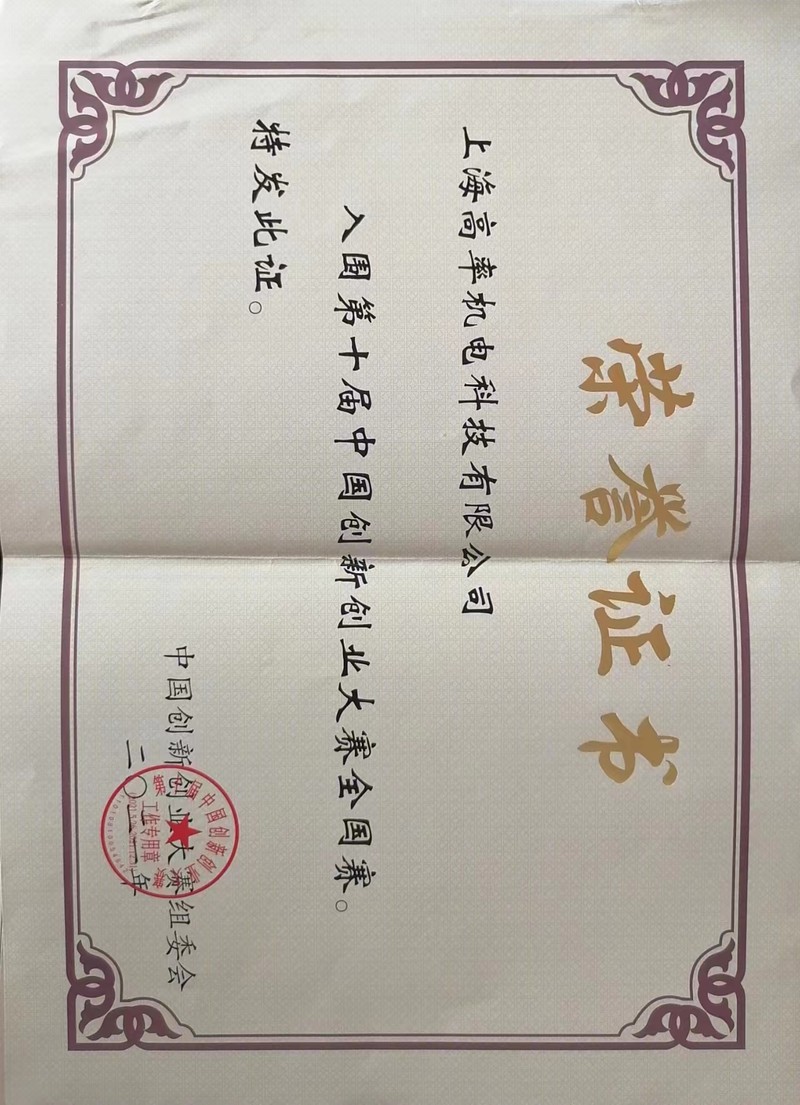 荣誉证书
上海高率机电科技有限公司
入围第十届中国创新创业大赛全国赛。
特发此证。
中国创新创业大赛组委会
二〇二一年
工作专用章